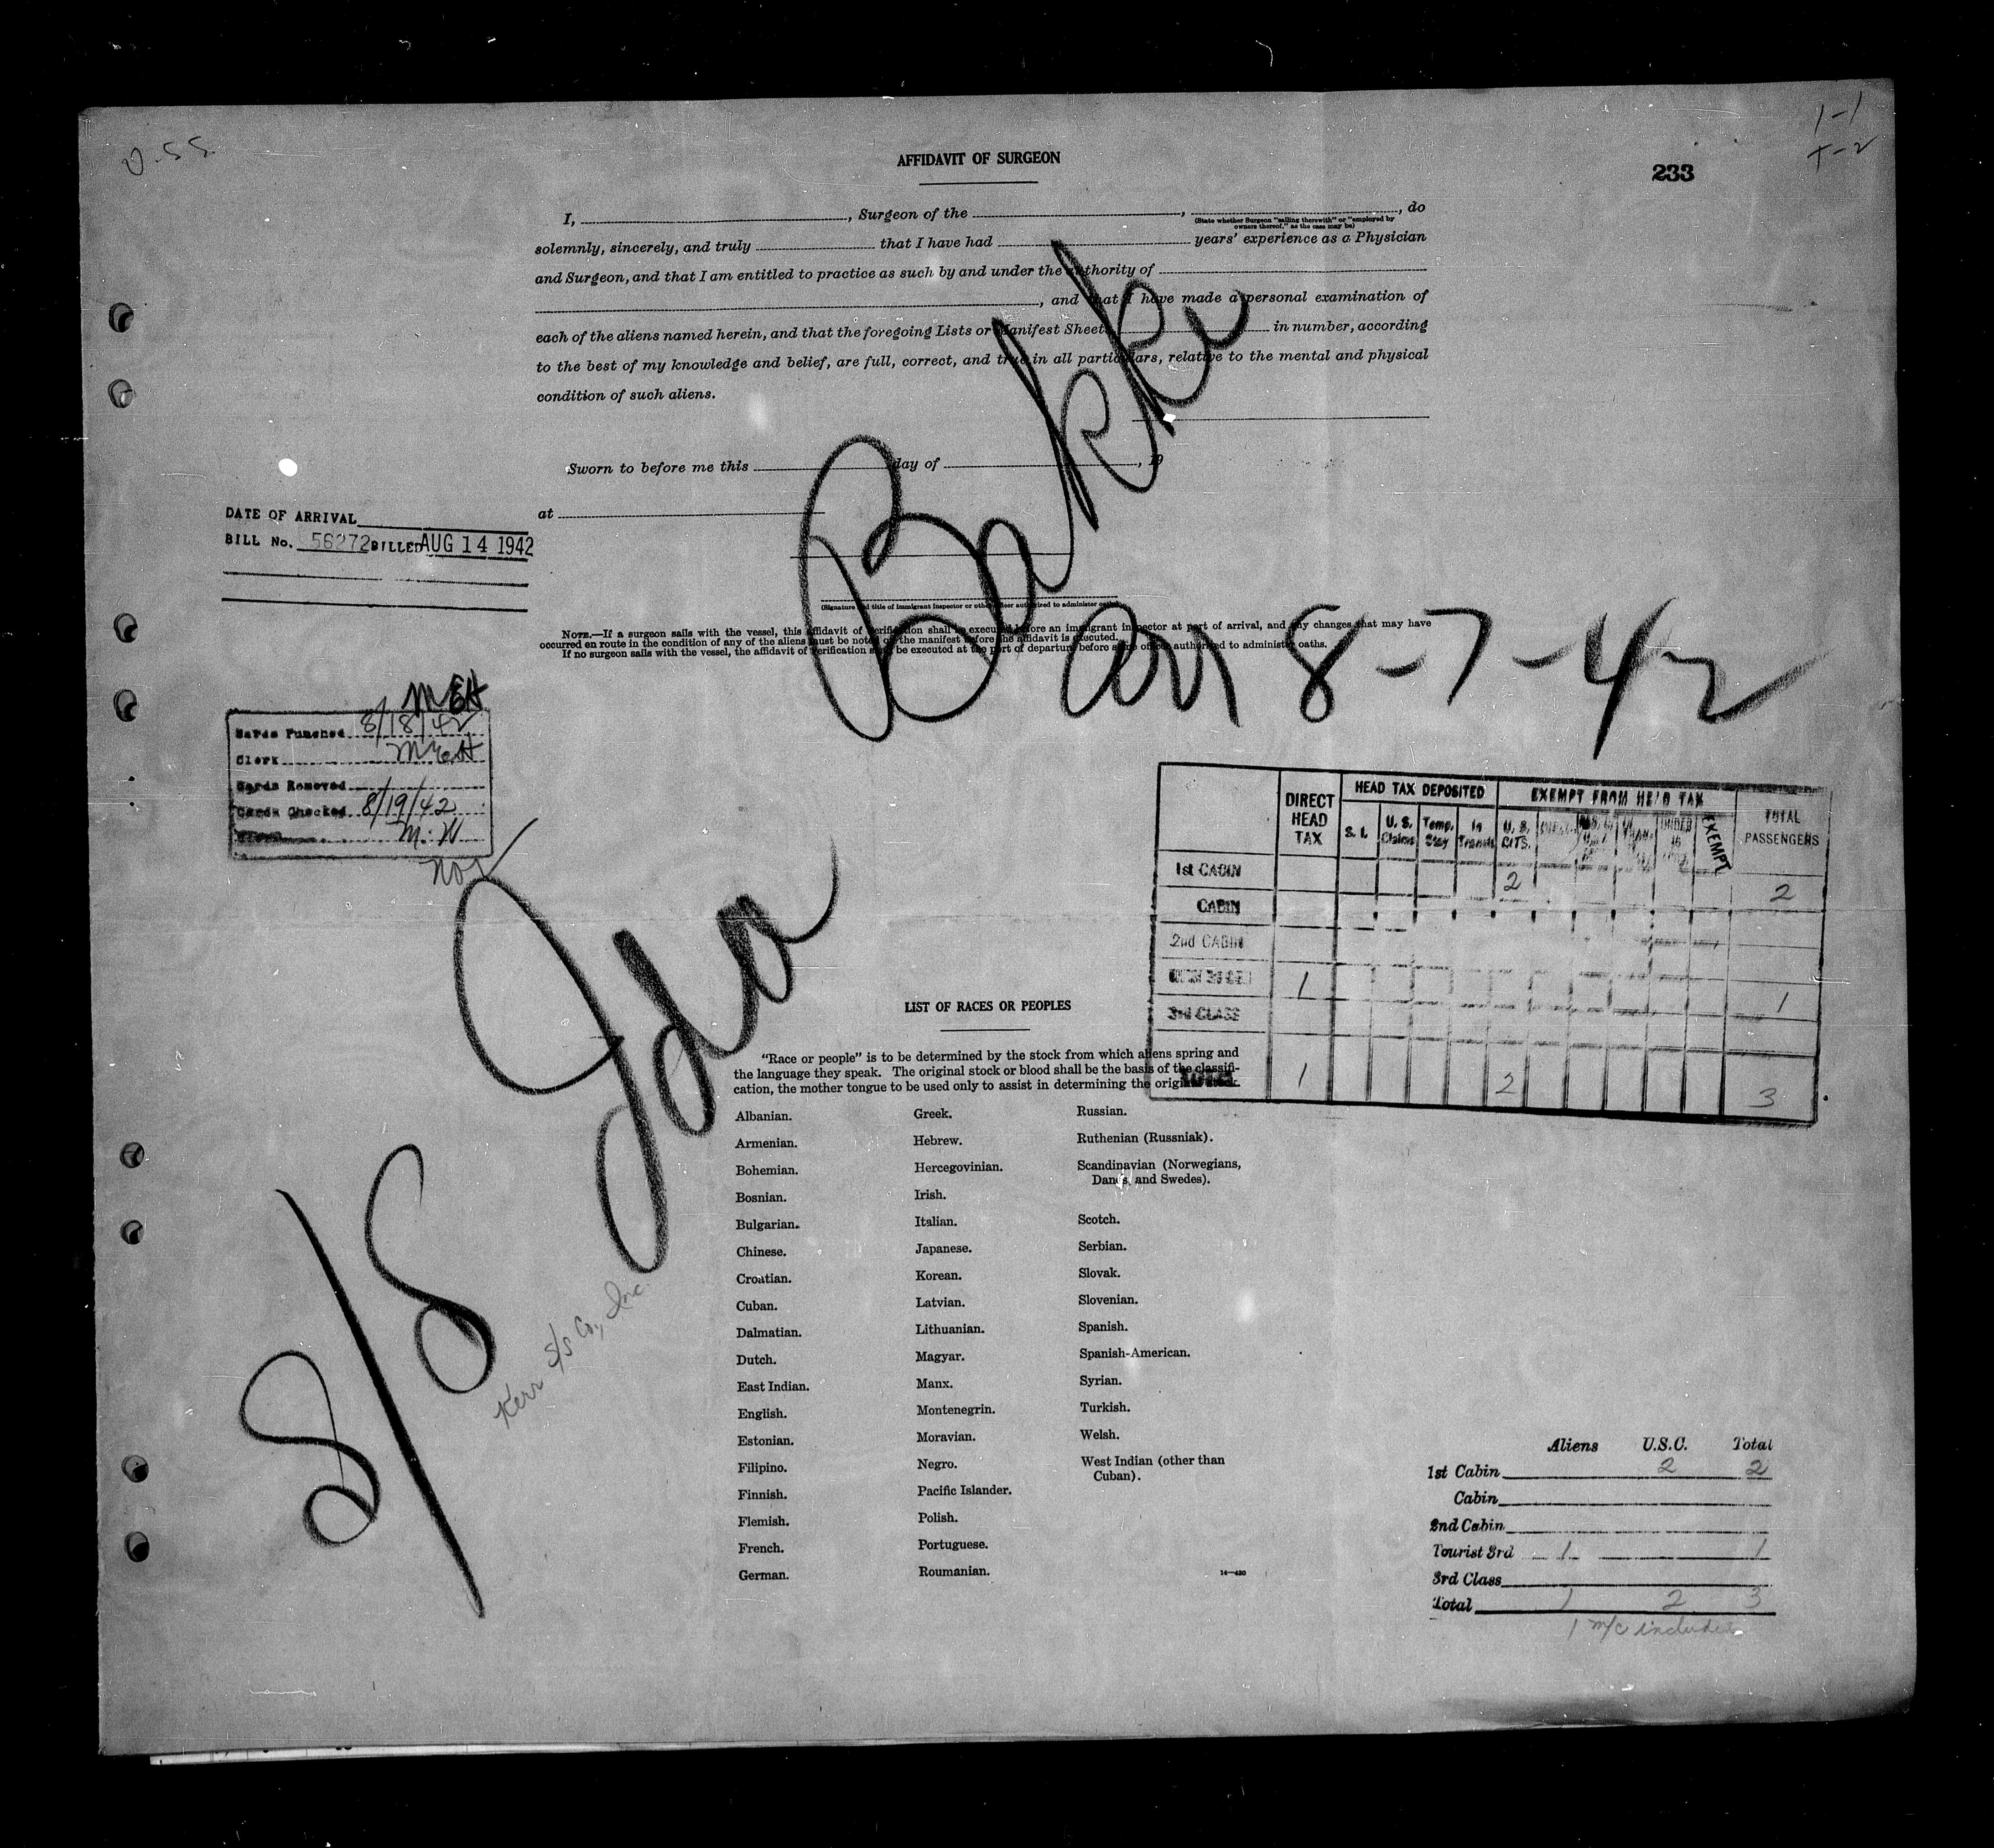 U.S.S.
1-1
T-2
233
AFFIDAVIT OF SURGEON
I, , Surgeon of the , , do
(State whether Surgeon "sailing therewith" or "employed by
owners thereof," as the case may be)
solemnly, sincerely, and truly that I have had years' experience as a Physician
and Surgeon, and that I am entitled to practice as such by and under the authority of
, and that I have made a personal examination of
each of the aliens named herein, and that the foregoing Lists or Manifest Sheets in number, according
to the best of my knowledge and belief, are full, correct, and true in all particulars, relative to the mental and physical
condition of such aliens.
Sworn to before me this day of , 19
at
DATE OF ARRIVAL
BILL No. 56272 BILLED AUG 14 1942
(Signature and title of Immigrant Inspector or other officer authorized to administer oaths)
NOTE.—If a surgeon sails with the vessel, this affidavit of verification shall be executed before an immigrant inspector at port of arrival, and any changes that may have
occurred en route in the condition of any of the aliens must be noted on the manifest before the affidavit is executed.
If no surgeon sails with the vessel, the affidavit of verification shall be executed at the port of departure before some officer authorized to administer oaths.
S/S Ida Bakke
arr 8-7-42
MEH
Cards Punched 8/18/42
Clerk MEH
Cards Removed
Cards Checked 8/19/42
M. W
Kerr S/S Co., Inc.
DIRECT HEAD TAX
HEAD TAX DEPOSITED
EXEMPT FROM HEAD TAX
TOTAL PASSENGERS
S. I. U. S. Claims Temp. Stay In Transit U. S. CITS. UNDER 16 EXEMPT
1st CABIN 2 2
CABIN
2nd CABIN
1 1
3rd CLASS
1 2 3
LIST OF RACES OR PEOPLES
"Race or people" is to be determined by the stock from which aliens spring and
the language they speak. The original stock or blood shall be the basis of the classifi-
cation, the mother tongue to be used only to assist in determining the original stock.
Albanian.
Armenian.
Bohemian.
Bosnian.
Bulgarian.
Chinese.
Croatian.
Cuban.
Dalmatian.
Dutch.
East Indian.
English.
Estonian.
Filipino.
Finnish.
Flemish.
French.
German.
Greek.
Hebrew.
Hercegovinian.
Irish.
Italian.
Japanese.
Korean.
Latvian.
Lithuanian.
Magyar.
Manx.
Montenegrin.
Moravian.
Negro.
Pacific Islander.
Polish.
Portuguese.
Roumanian.
Russian.
Ruthenian (Russniak).
Scandinavian (Norwegians,
Danes, and Swedes).
Scotch.
Serbian.
Slovak.
Slovenian.
Spanish.
Spanish-American.
Syrian.
Turkish.
Welsh.
West Indian (other than
Cuban).
14—430
Aliens U.S.C. Total
1st Cabin 2 2
Cabin
2nd Cabin
Tourist 3rd 1 1
3rd Class
Total 1 2 3
1 m/c included